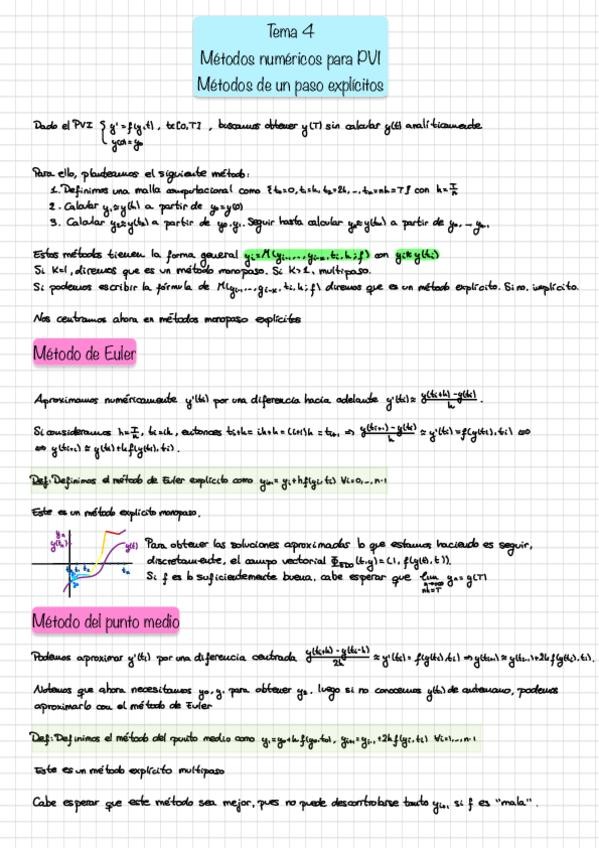 Tema 4
Métodos numéricos para PVI
Métodos de un paso explícitos
Dado el PVI { y' = f(y,t), t∈[0,T], buscamos obtener y(T) sin calcular y(t) analíticamente
y(0)=y₀
Para ello, planteamos el siguiente método:
1. Definimos una malla computacional como {t₀=0, t₁=h, t₂=2h, ..., tₙ=nh=T} con h=T/n
2. Calcular y₁≈y(h) a partir de y₀=y(0)
3. Calcular y₂≈y(t₂) a partir de y₀,y₁. Seguir hasta calcular yₙ≈y(tₙ) a partir de y₀, ... yₙ₋₁
Estos métodos tienen la forma general con yᵢ≈y(tᵢ)
Si K=1, diremos que es un método monopaso. Si K>1, multipaso.
Si podemos escribir la fórmula de diremos que es un método explícito. Si no, implícito.
Nos centramos ahora en métodos monopaso explícitos
Método de Euler
Aproximamos numéricamente y'(tᵢ) por una diferencia hacia adelante y'(tᵢ)≈ (y(tᵢ+h)-y(tᵢ))/h.
Si consideramos h=T/n, tᵢ=ih, entonces tᵢ+h=ih+h=(i+1)h=tᵢ₊₁ ⇒ (y(tᵢ₊₁)-y(tᵢ))/h ≈ y'(tᵢ)=f(y(tᵢ),tᵢ) ⇔
⇔ y(tᵢ₊₁)≈y(tᵢ)+hf(y(tᵢ),tᵢ).
Def: Definimos el método de Euler explícito como yᵢ₊₁=yᵢ+hf(yᵢ,tᵢ) ∀i=0,...,n-1
Este es un método explícito monopaso.
yₙ
y(tₙ)
y(t)
tₙ
Para obtener las soluciones aproximadas lo que estamos haciendo es seguir,
discretamente, el campo vectorial (t,y)=(1, f(y(t),t)).
Si f es lo suficientemente buena, cabe esperar que lim yₙ=y(T)
n→∞
nh=T
Método del punto medio
Podemos aproximar y'(tᵢ) por una diferencia centrada (y(tᵢ+h)-y(tᵢ-h))/2h ≈ y'(tᵢ)=f(y(tᵢ),tᵢ) ⇒ y(tᵢ₊₁)≈y(tᵢ₋₁)+2hf(y(tᵢ),tᵢ).
Notemos que ahora necesitamos y₀,y₁ para obtener y₂. Luego si no conocemos y(t₁) de antemano, podemos
aproximarlo con el método de Euler
Def: Definimos el método del punto medio como y₁=y₀+hf(y₀,t₀), yᵢ₊₁=yᵢ₋₁+2hf(yᵢ,tᵢ) ∀i=1,...,n-1
Este es un método explícito multipaso
Cabe esperar que este método sea mejor, pues no puede descontrolarse tanto yᵢ₊₁ si f es "mala".